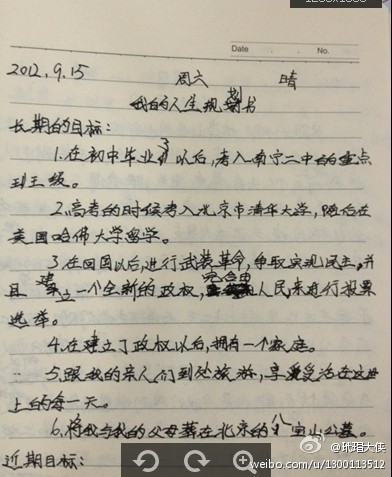 Date No.
2012.9.15 周六 晴
我的人生规划书
长期的目标:
1.在初中毕业了以后,考入南宁二中的重点
班级。
2.高考的时候考入北京市清华大学,随后在
美国哈佛大学留学。
3.在回国以后,进行武装革命,争取实现民主,并
且建立一个全新的政权,完全由人民来进行投票
选举。
4.在建立了政权以后,拥有一个家庭。
5.跟我的亲人们到处旅游,享受活在这世
上的每一天。
6.将我与我的父母葬在北京的八宝山公墓。
近期目标:
@玳瑁大使
weibo.com/u/1300113512